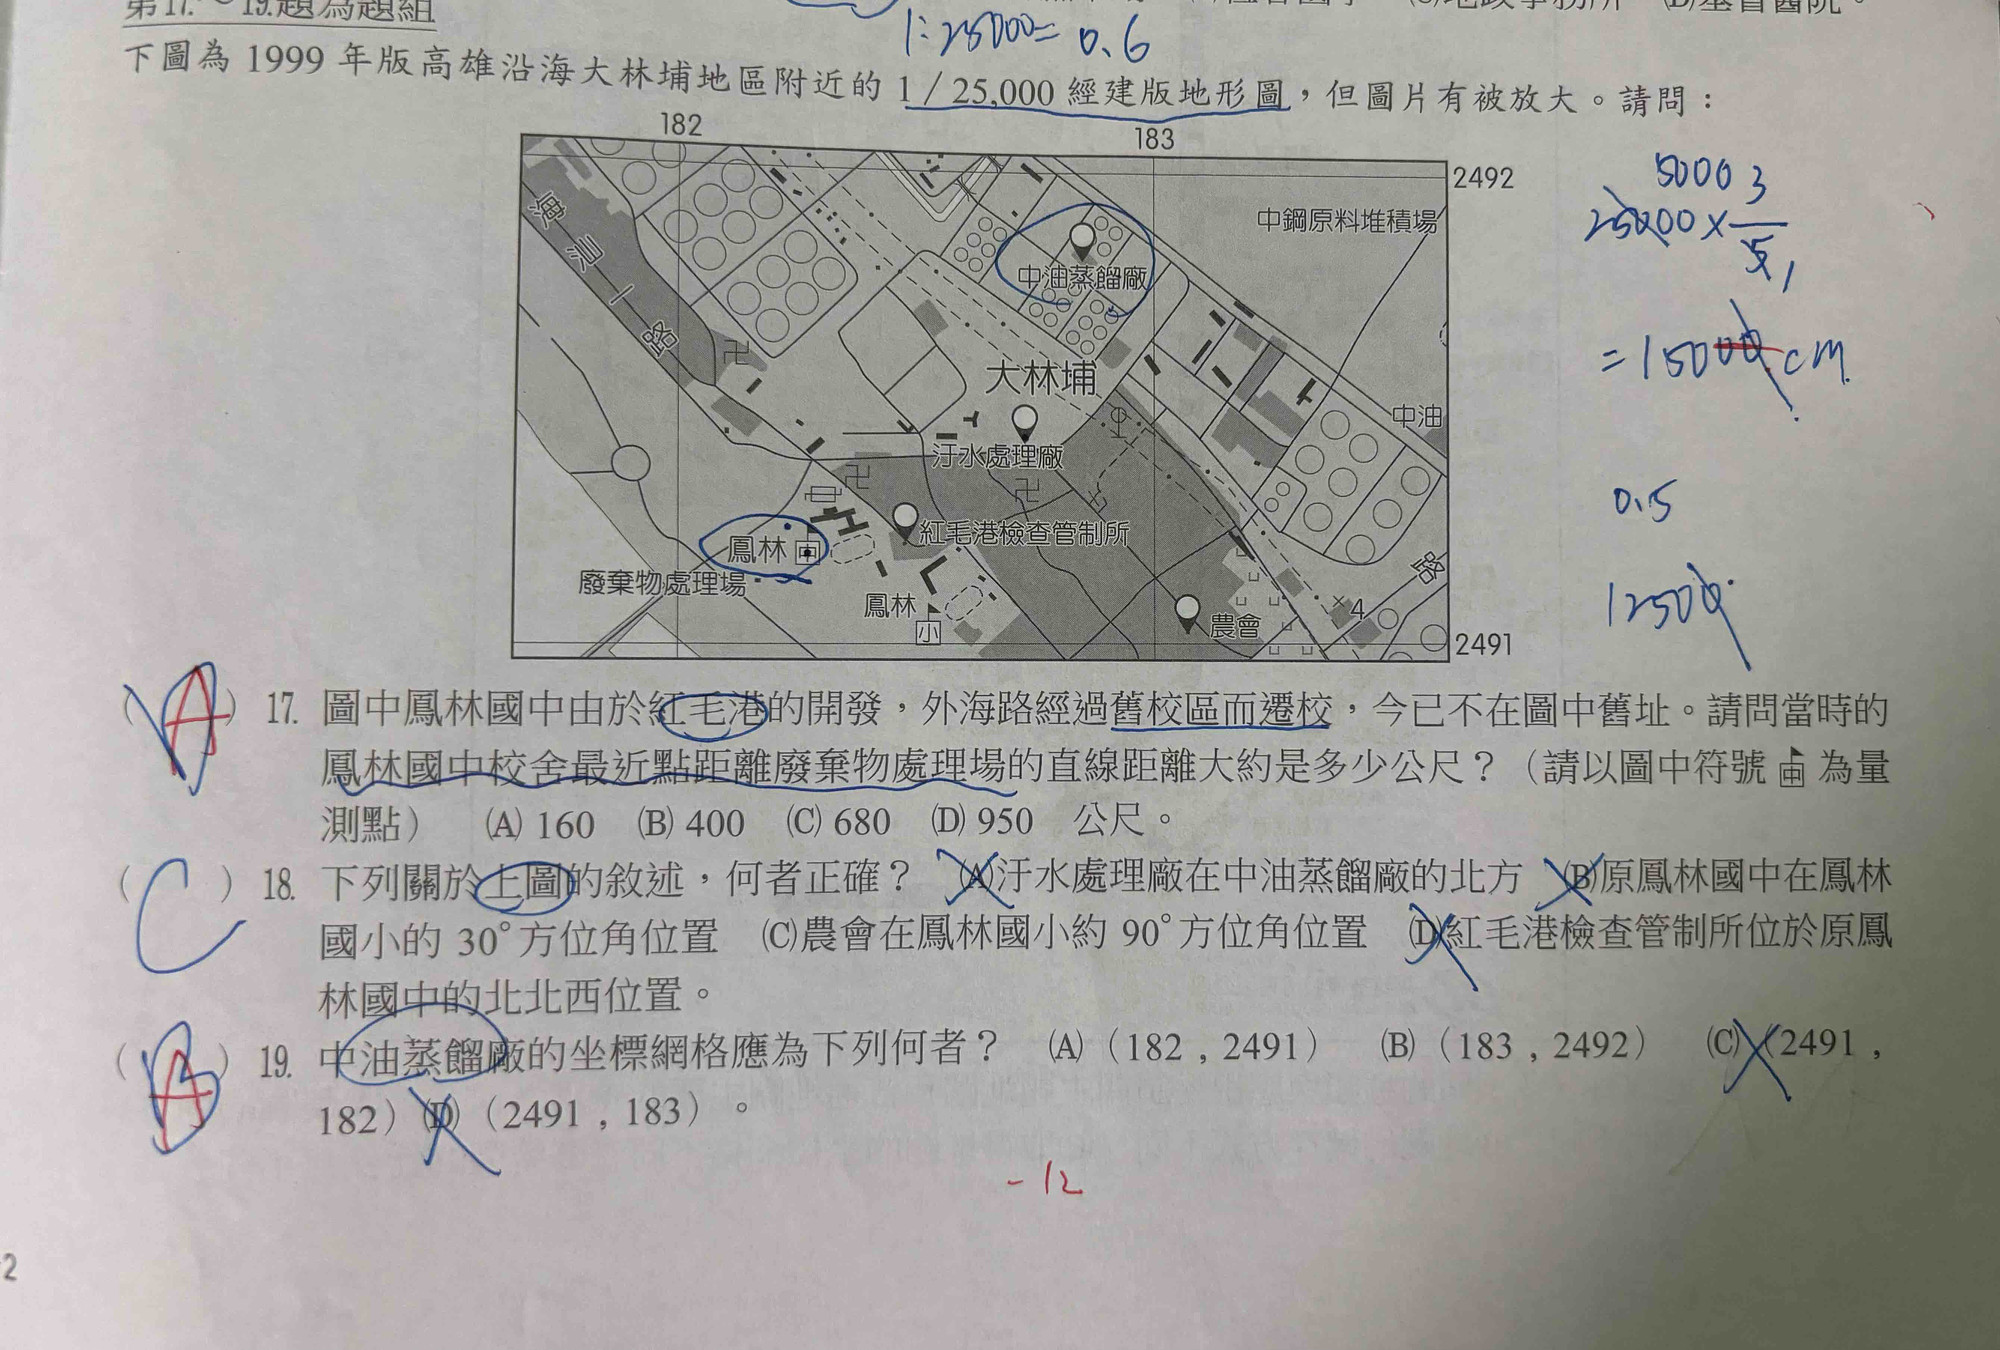 第17.～19.題為題組
1:25000= 0.6
下圖為 1999 年版高雄沿海大林埔地區附近的 1／25,000 經建版地形圖，但圖片有被放大。請問：
182
183
2492
海汕一路
中鋼原料堆積場
中油蒸餾廠
大林埔
中油
汙水處理廠
紅毛港檢查管制所
鳳林 中
廢棄物處理場
鳳林
小
農會
×4
路
2491
5000 3
25000×3/5 1
=15000 cm
0.5
12500
(A) 17. 圖中鳳林國中由於紅毛港的開發，外海路經過舊校區而遷校，今已不在圖中舊址。請問當時的
鳳林國中校舍最近點距離廢棄物處理場的直線距離大約是多少公尺？（請以圖中符號 中 為量
測點） (A) 160 (B) 400 (C) 680 (D) 950 公尺。
(C) 18. 下列關於上圖的敘述，何者正確？ (A)汙水處理廠在中油蒸餾廠的北方 (B)原鳳林國中在鳳林
國小的 30°方位角位置 (C)農會在鳳林國小約 90°方位角位置 (D)紅毛港檢查管制所位於原鳳
林國中的北北西位置。
(A) 19. 中油蒸餾廠的坐標網格應為下列何者？ (A)（182，2491） (B)（183，2492） (C)（2491，
182）(D)（2491，183）。
-12
2